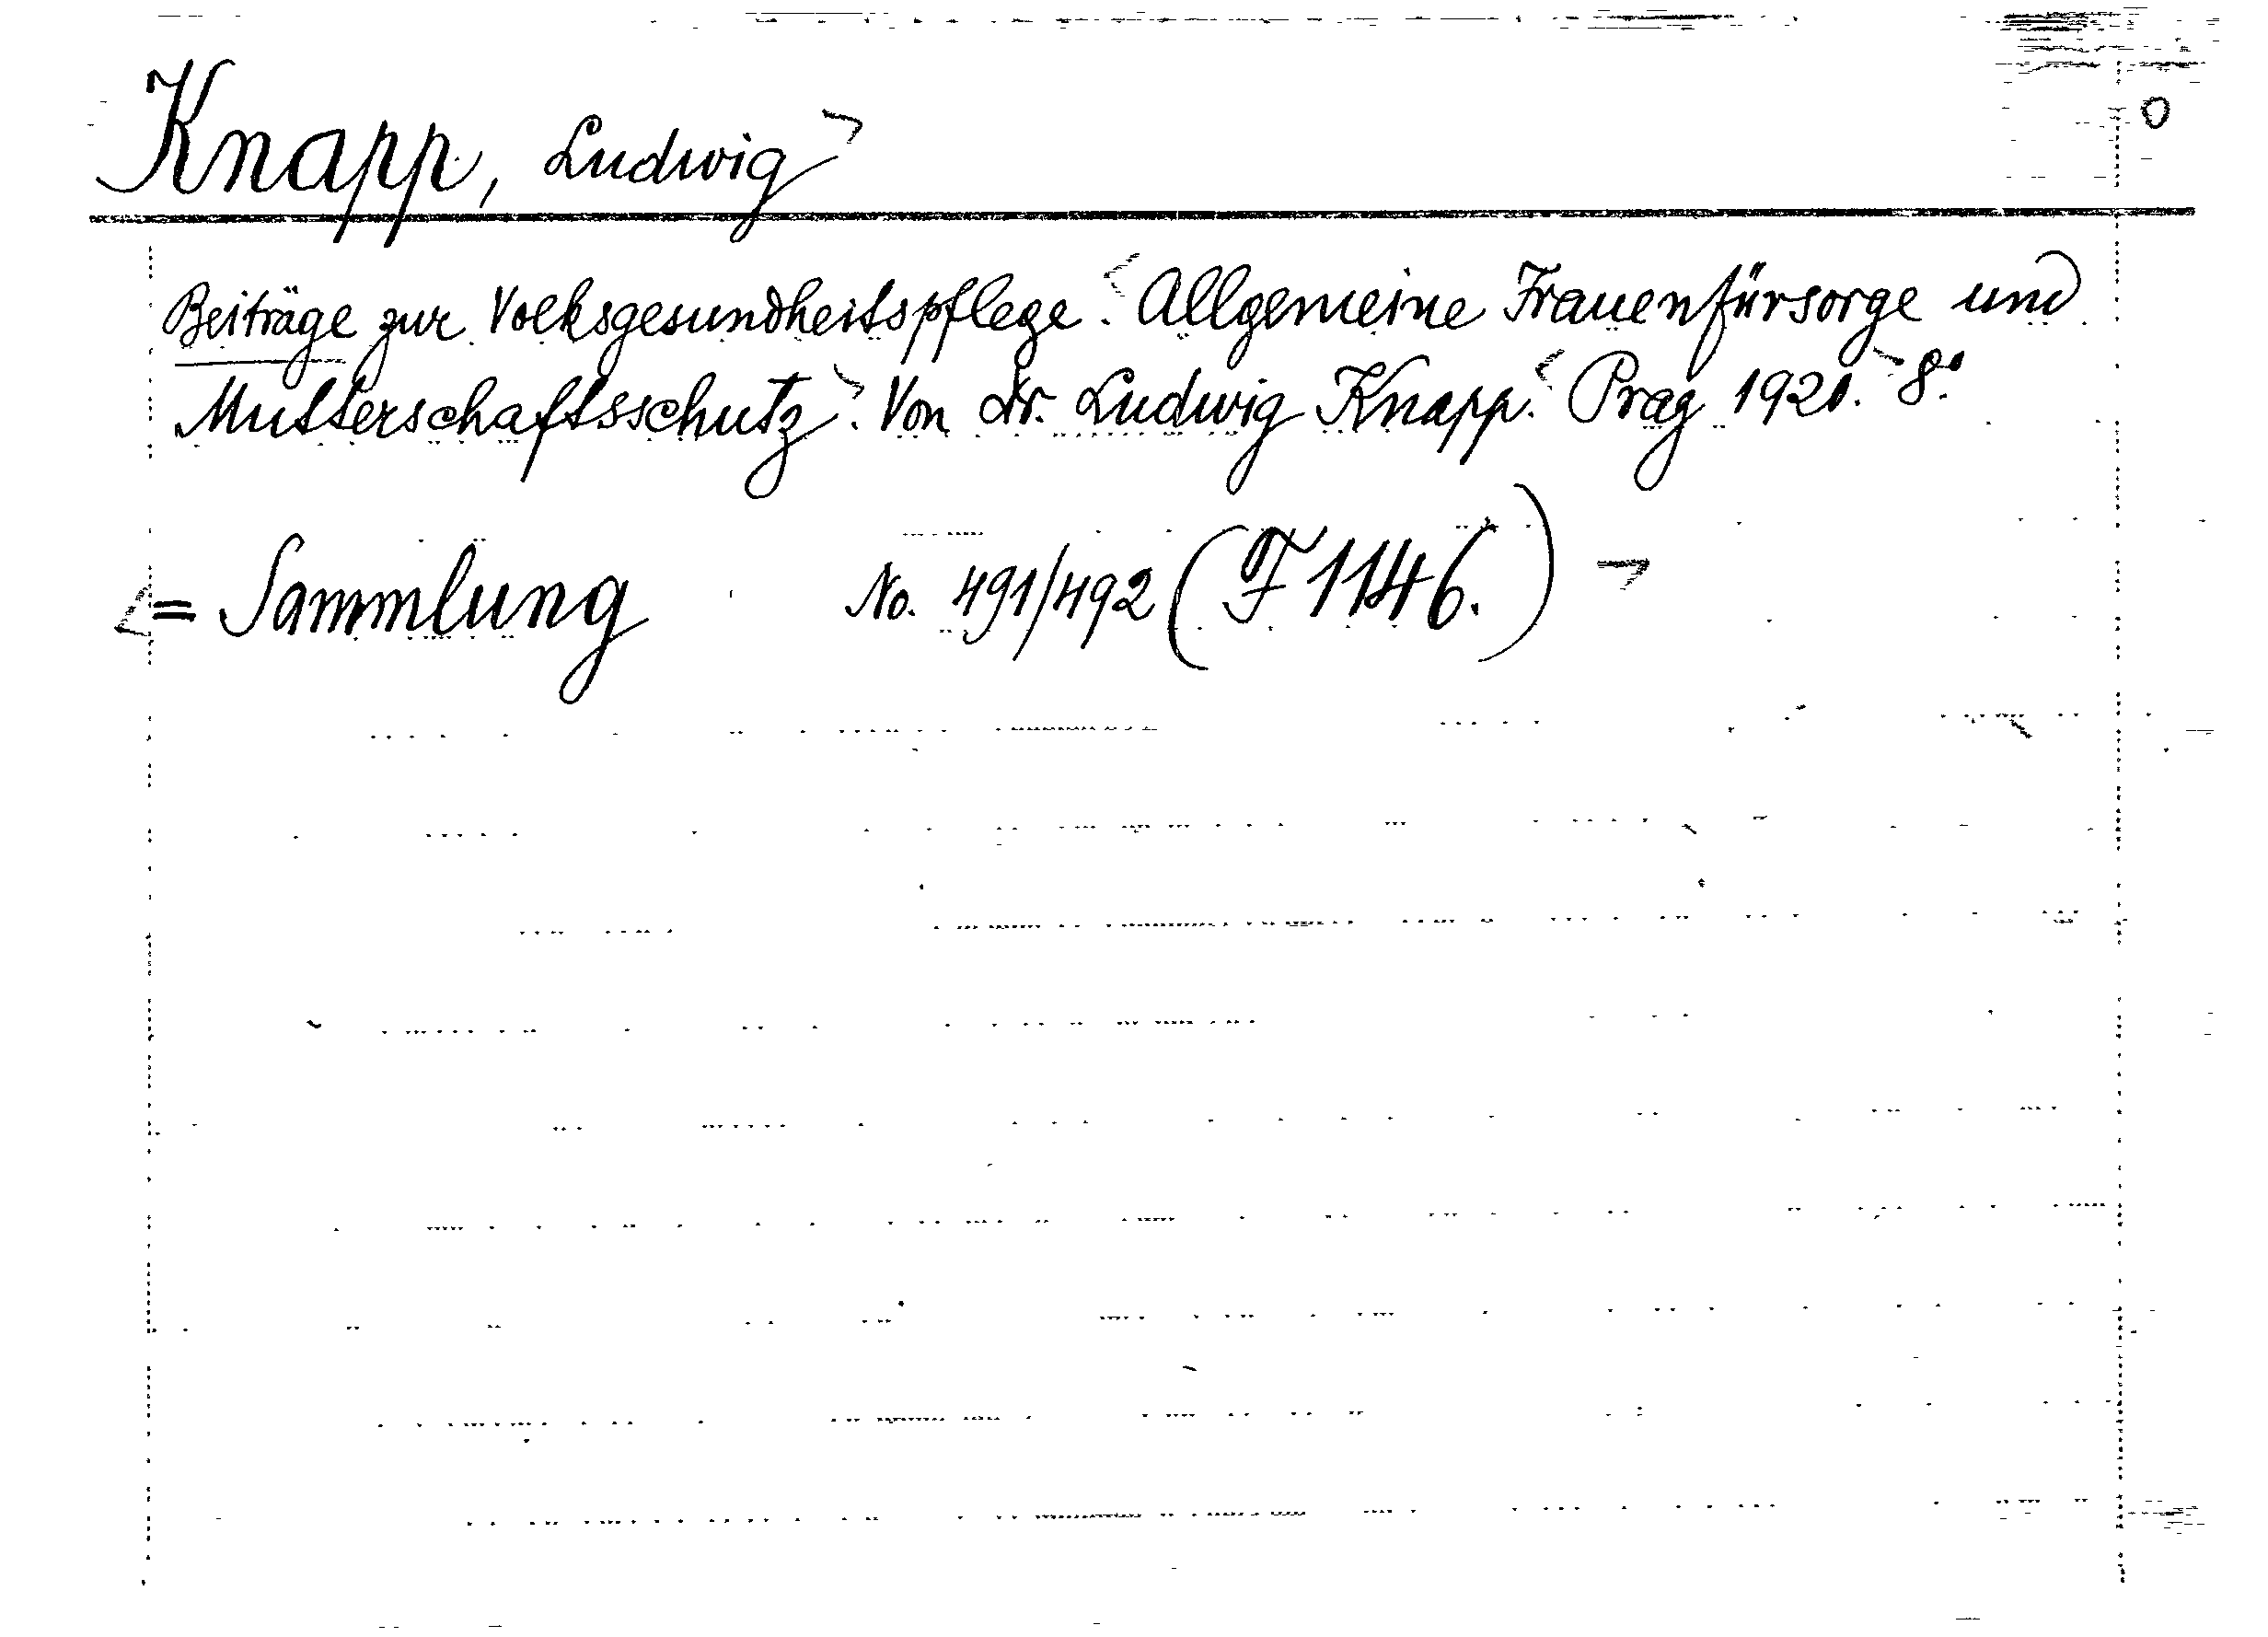 Knapp, Ludwig
Beiträge zur Volksgesundheitspflege. Allgemeine Frauenfürsorge und
Mutterschaftsschutz. Von Dr. Ludwig Knapp. Prag 1920. 8°.
= Sammlung No. 491/492 (F 1146.)